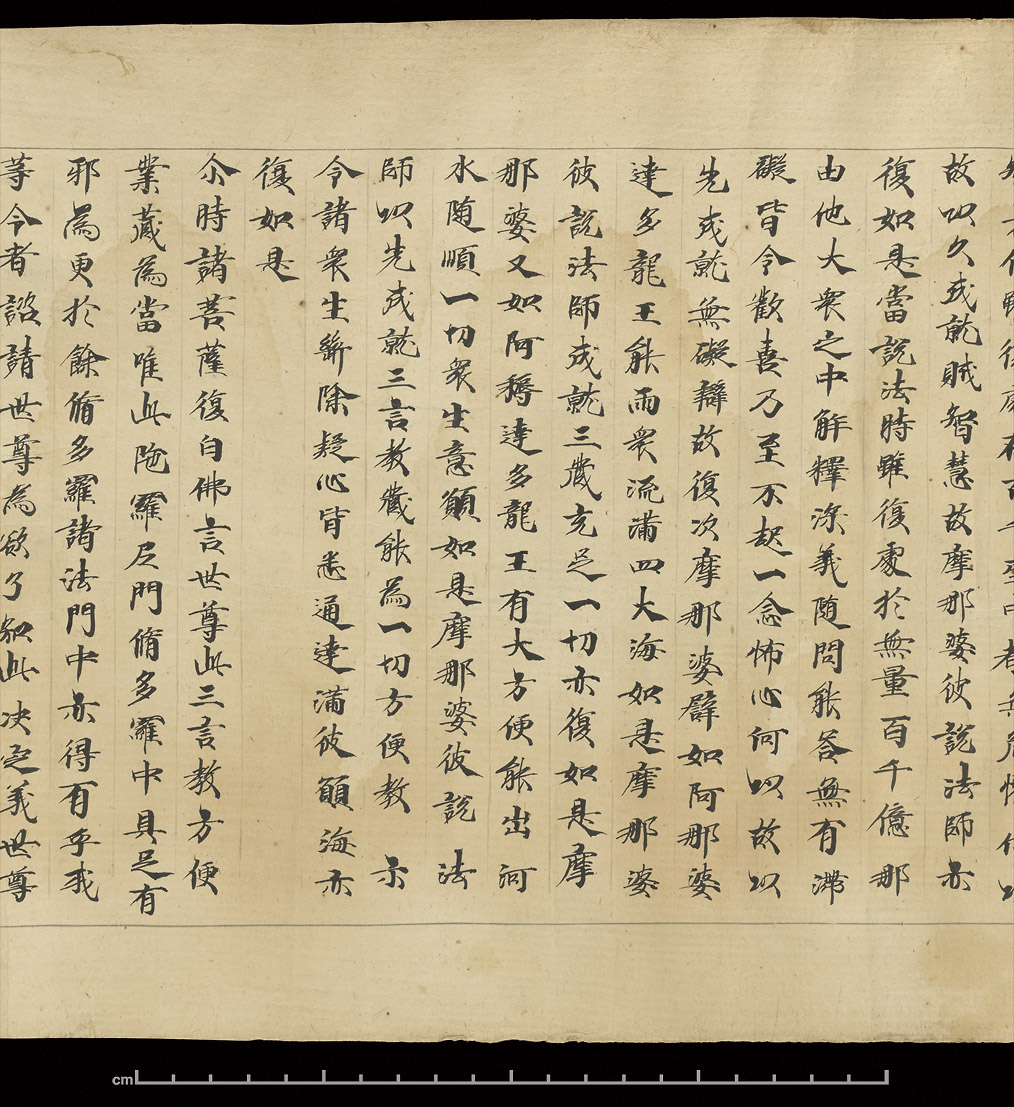 故以久成就賊智慧故摩那婆彼說法師亦
復如是當說法時雖復處於無量百千億那
由他大衆之中解釋深義随問能荅無有滯
礙皆令歡喜乃至不起一念怖心何以故以
先成就無礙辯故復次摩那婆辟如阿那婆
達多龍王能雨衆流滿四大海如是摩那婆
彼說法師成就三藏充足一切亦復如是摩
那婆又如阿耨達多龍王有大方便能出河
水随順一切衆生意願如是摩那婆彼說法
師以先成就三言教藏能為一切方便教示
今諸衆生斷除疑心皆悉通達滿彼願海亦
復如是
尒時諸菩薩復白佛言世尊此三言教方便
業藏為當唯此陁羅尼門脩多羅中具足有
邪為更於餘脩多羅諸法門中亦得有乎我
等今者諮請世尊為欲了知此决㝎義世尊
cm